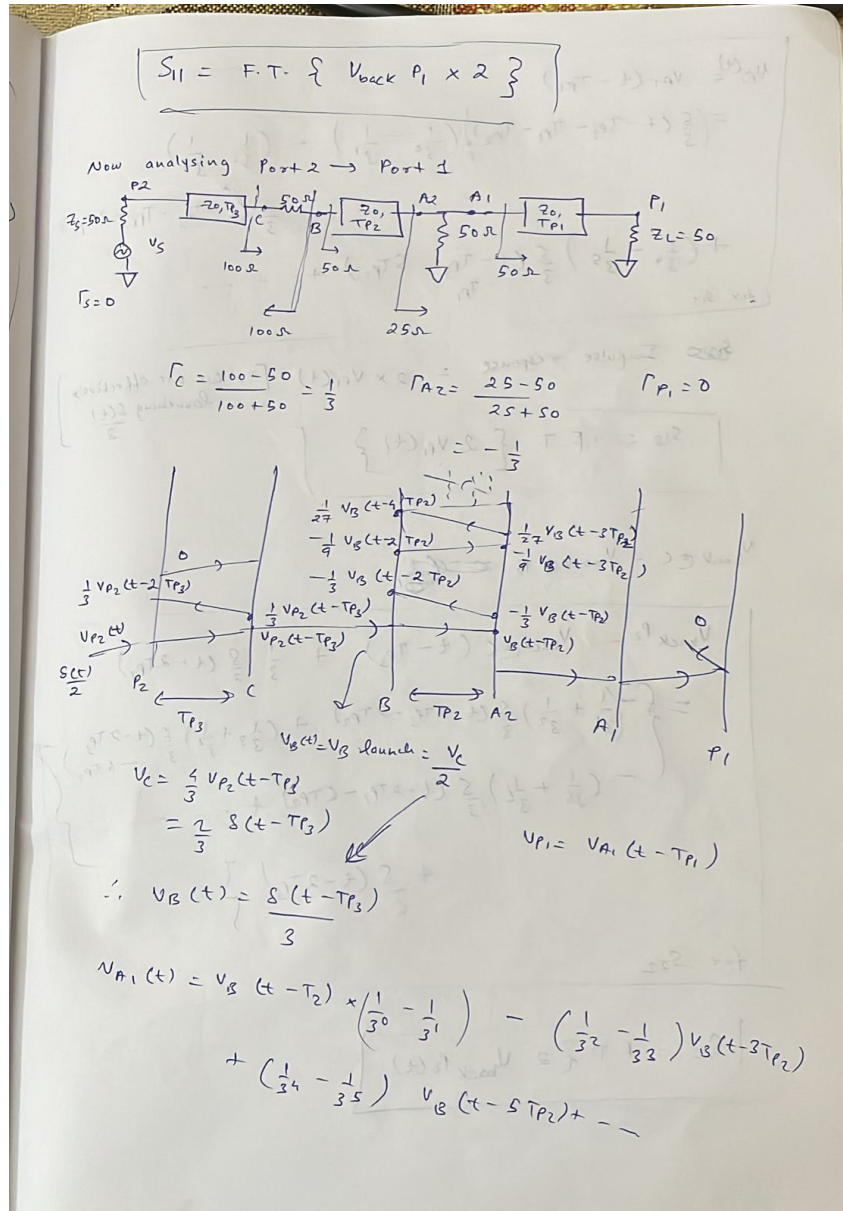 S11 = F.T. { Vback P1 × 2 }
Now analysing Port 2 → Port 1
P2
Z0, TP3
C
50Ω
B
Z0, TP2
A2
A1
Z0, TP1
P1
ZS=50Ω
VS
50Ω
ZL = 50
100Ω
50Ω
50Ω
ΓS=0
100Ω
25Ω
ΓC = 100-50 / 100+50 = 1/3
ΓA2 = 25-50 / 25+50
ΓP1 = 0
= -1/3
1/27 VB(t-4TP2)
-1/9 VB(t-2TP2)
-1/3 VB(t-2TP2)
1/27 VB(t-3TP2)
-1/9 VB(t-3TP2)
-1/3 VB(t-TP2)
VB(t-TP2)
0
1/3 VP2(t-2TP3)
1/3 VP2(t-TP3)
VP2(t)
VP2(t-TP3)
0
δ(t)/2
P2
C
B
TP2
A2
A1
P1
TP3
VB(t)=VB launch = VC/2
VC = 4/3 VP2(t-TP3)
= 2/3 δ(t-TP3)
VP1 = VA1(t-TP1)
∴ VB(t) = δ(t-TP3)/3
VA1(t) = VB(t-T2) × (1/3^0 - 1/3^1) - (1/3^2 - 1/3^3) VB(t-3TP2)
+ (1/3^4 - 1/3^5) VB(t-5TP2)+ ---